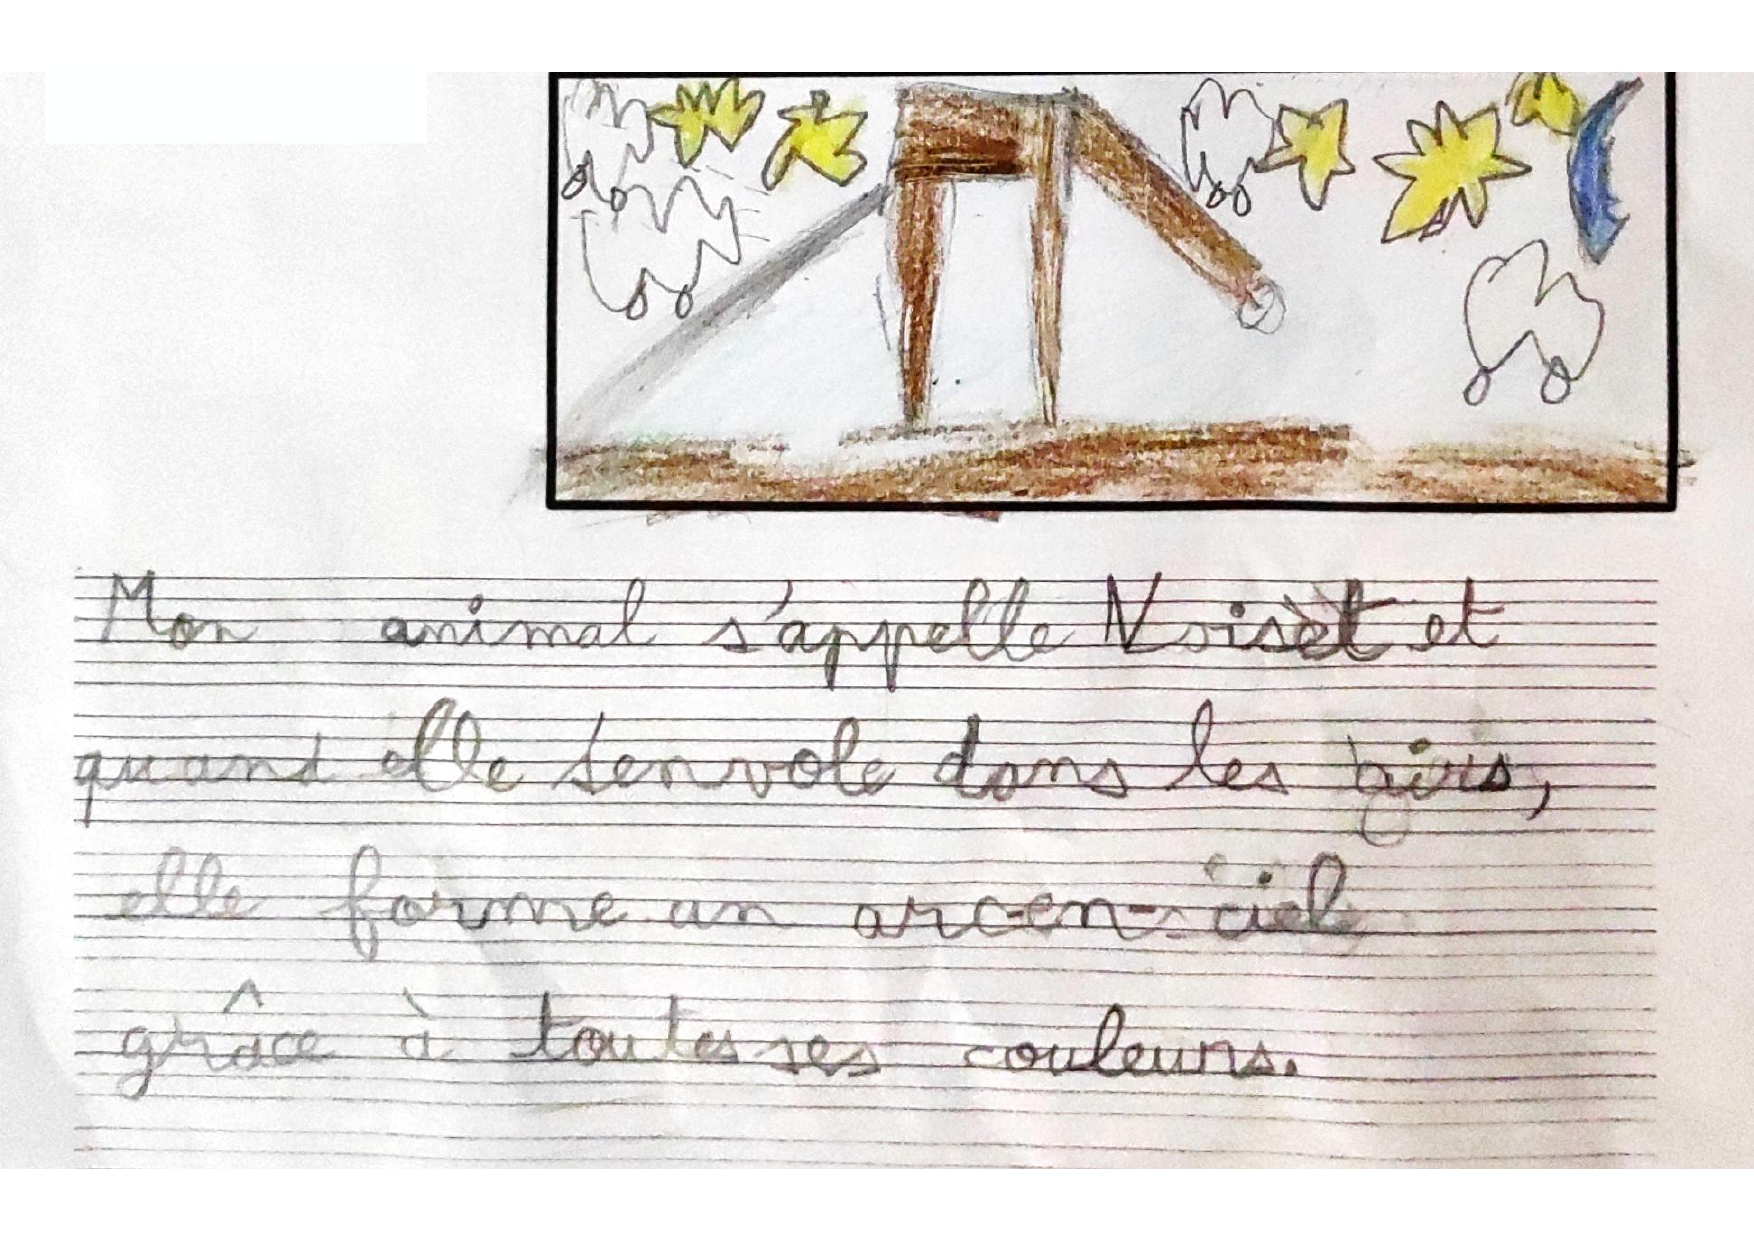 Mon animal s'appelle et
quand elle s'envole dans les airs,
elle forme un arc-en-ciel
grâce à toutes ses couleurs.